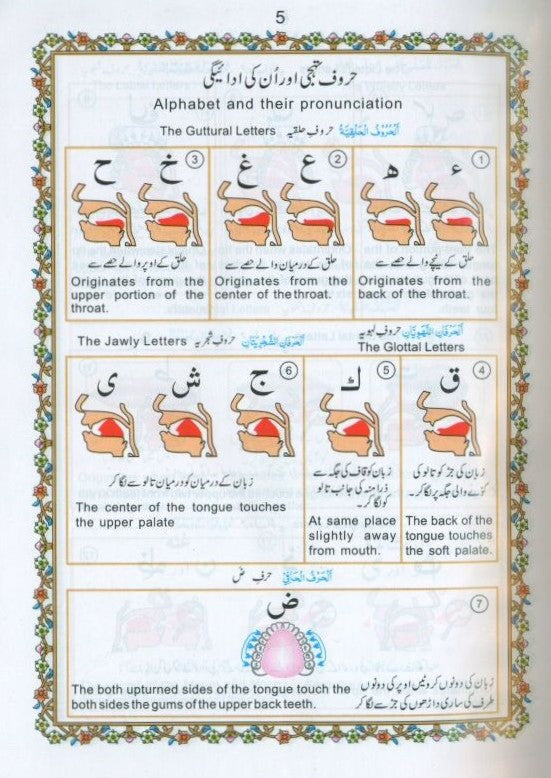 5
حروف تہجی اور اُن کی ادائیگی
Alphabet and their pronunciation
The Guttural Letters حروفِ حلقیہ اَلْحُرُوْفُ الْحَلْقِيَّةُ
ء ه ①
حلق کے نیچے والے حصے سے
Originates from the
back of the throat.
ع غ ②
حلق کے درمیان والے حصے سے
Originates from the
center of the throat.
خ ح ③
حلق کے اوپر والے حصے سے
Originates from the
upper portion of the
throat.
اَلْحَرْفَانِ اللَّهَوِيَّانِ حروفِ لہویہ
The Glottal Letters
The Jawly Letters حروفِ شجریہ اَلْحَرْفَانِ الشَّجْرِيَّتَانِ
ق ④
زبان کی جڑ کو تالو کی
کوّے والی جگہ پر لگا کر۔
The back of the
tongue touches
the soft palate.
ك ⑤
زبان کو قاف کی جگہ سے
ذرا منہ کی جانب تالو
کو لگا کر۔
At same place
slightly away
from mouth.
ج ش ی ⑥
زبان کے درمیان کو درمیان تالو سے لگا کر
The center of the tongue touches
the upper palate
حرفِ ضٓ اَلْحَرْفُ الْحَافِيُّ
ض ⑦
زبان کی دونوں کروٹیں اوپر کی دونوں
طرف کی ساری داڑھوں کی جڑ سے لگا کر
The both upturned sides of the tongue touch the
both sides the gums of the upper back teeth.